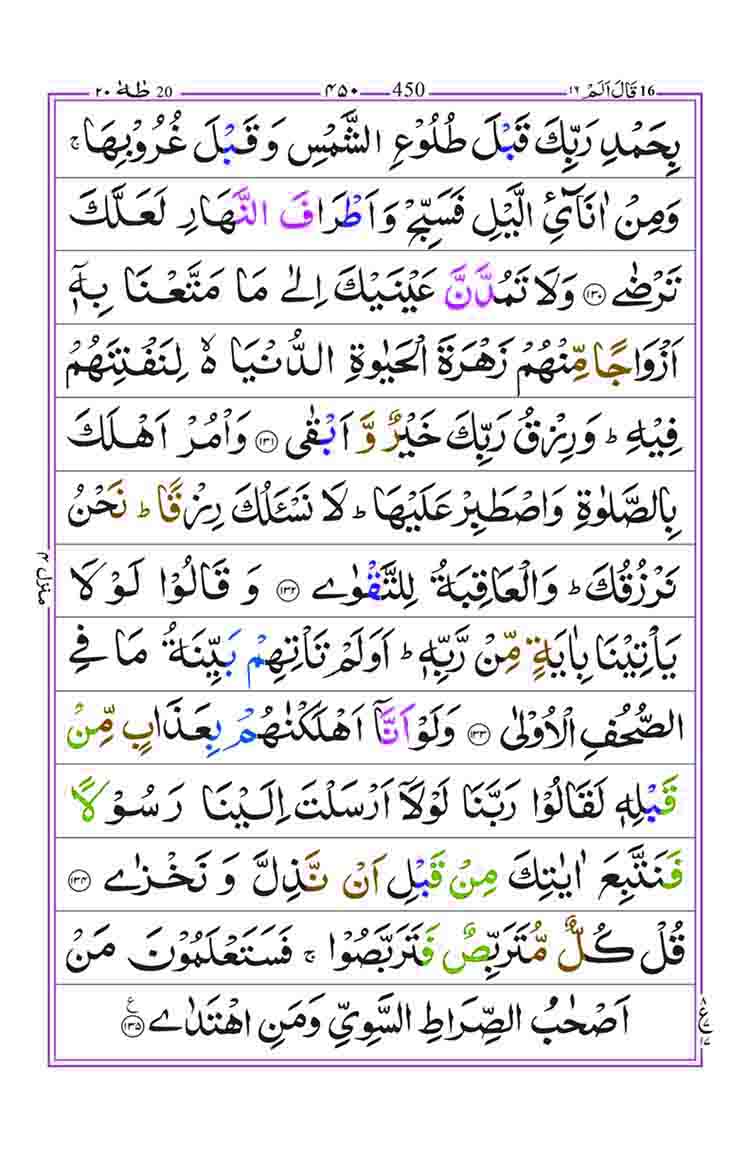 ٢٠ طٰهٰ 20 ٤٥٠ 450 ١٦ قَالَ اَلَمْ 16
بِحَمْدِ رَبِّكَ قَبْلَ طُلُوْعِ الشَّمْسِ وَ قَبْلَ غُرُوْبِهَا ۚ
وَمِنْ اٰنَآئِ الَّيْلِ فَسَبِّحْ وَاَطْرَافَ النَّهَارِ لَعَلَّكَ
تَرْضٰى ﴿۱۳۰﴾ وَلَا تَمُدَّنَّ عَيْنَيْكَ اِلٰى مَا مَتَّعْنَا بِهٖۤ
اَزْوَاجًا مِّنْهُمْ زَهْرَةَ الْحَيٰوةِ الدُّنْيَا ۙ لِنَفْتِنَهُمْ
فِيْهِ ؕ وَرِزْقُ رَبِّكَ خَيْرٌ وَّ اَبْقٰى ﴿۱۳۱﴾ وَاْمُرْ اَهْلَكَ
بِالصَّلٰوةِ وَاصْطَبِرْ عَلَيْهَا ؕ لَا نَسْئَلُكَ رِزْقًا ؕ نَحْنُ
نَرْزُقُكَ ؕ وَالْعَاقِبَةُ لِلتَّقْوٰى ﴿۱۳۲﴾ وَ قَالُوْا لَوْ لَا
يَاْتِيْنَا بِاٰيَةٍ مِّنْ رَّبِّهٖ ؕ اَوَلَمْ تَاْتِهِمْ بَيِّنَةُ مَا فِى
الصُّحُفِ الْاُوْلٰى ﴿۱۳۳﴾ وَلَوْ اَنَّاۤ اَهْلَكْنٰهُمْ بِعَذَابٍ مِّنْ
قَبْلِهٖ لَقَالُوْا رَبَّنَا لَوْلَاۤ اَرْسَلْتَ اِلَيْنَا رَسُوْلًا
فَنَتَّبِعَ اٰيٰتِكَ مِنْ قَبْلِ اَنْ نَّذِلَّ وَ نَخْزٰى ﴿۱۳۴﴾
قُلْ كُلٌّ مُّتَرَبِّصٌ فَتَرَبَّصُوْا ۚ فَسَتَعْلَمُوْنَ مَنْ
اَصْحٰبُ الصِّرَاطِ السَّوِىِّ وَمَنِ اهْتَدٰى ﴿۱۳۵﴾ ع
منزل ٤
٨ ع ١٧